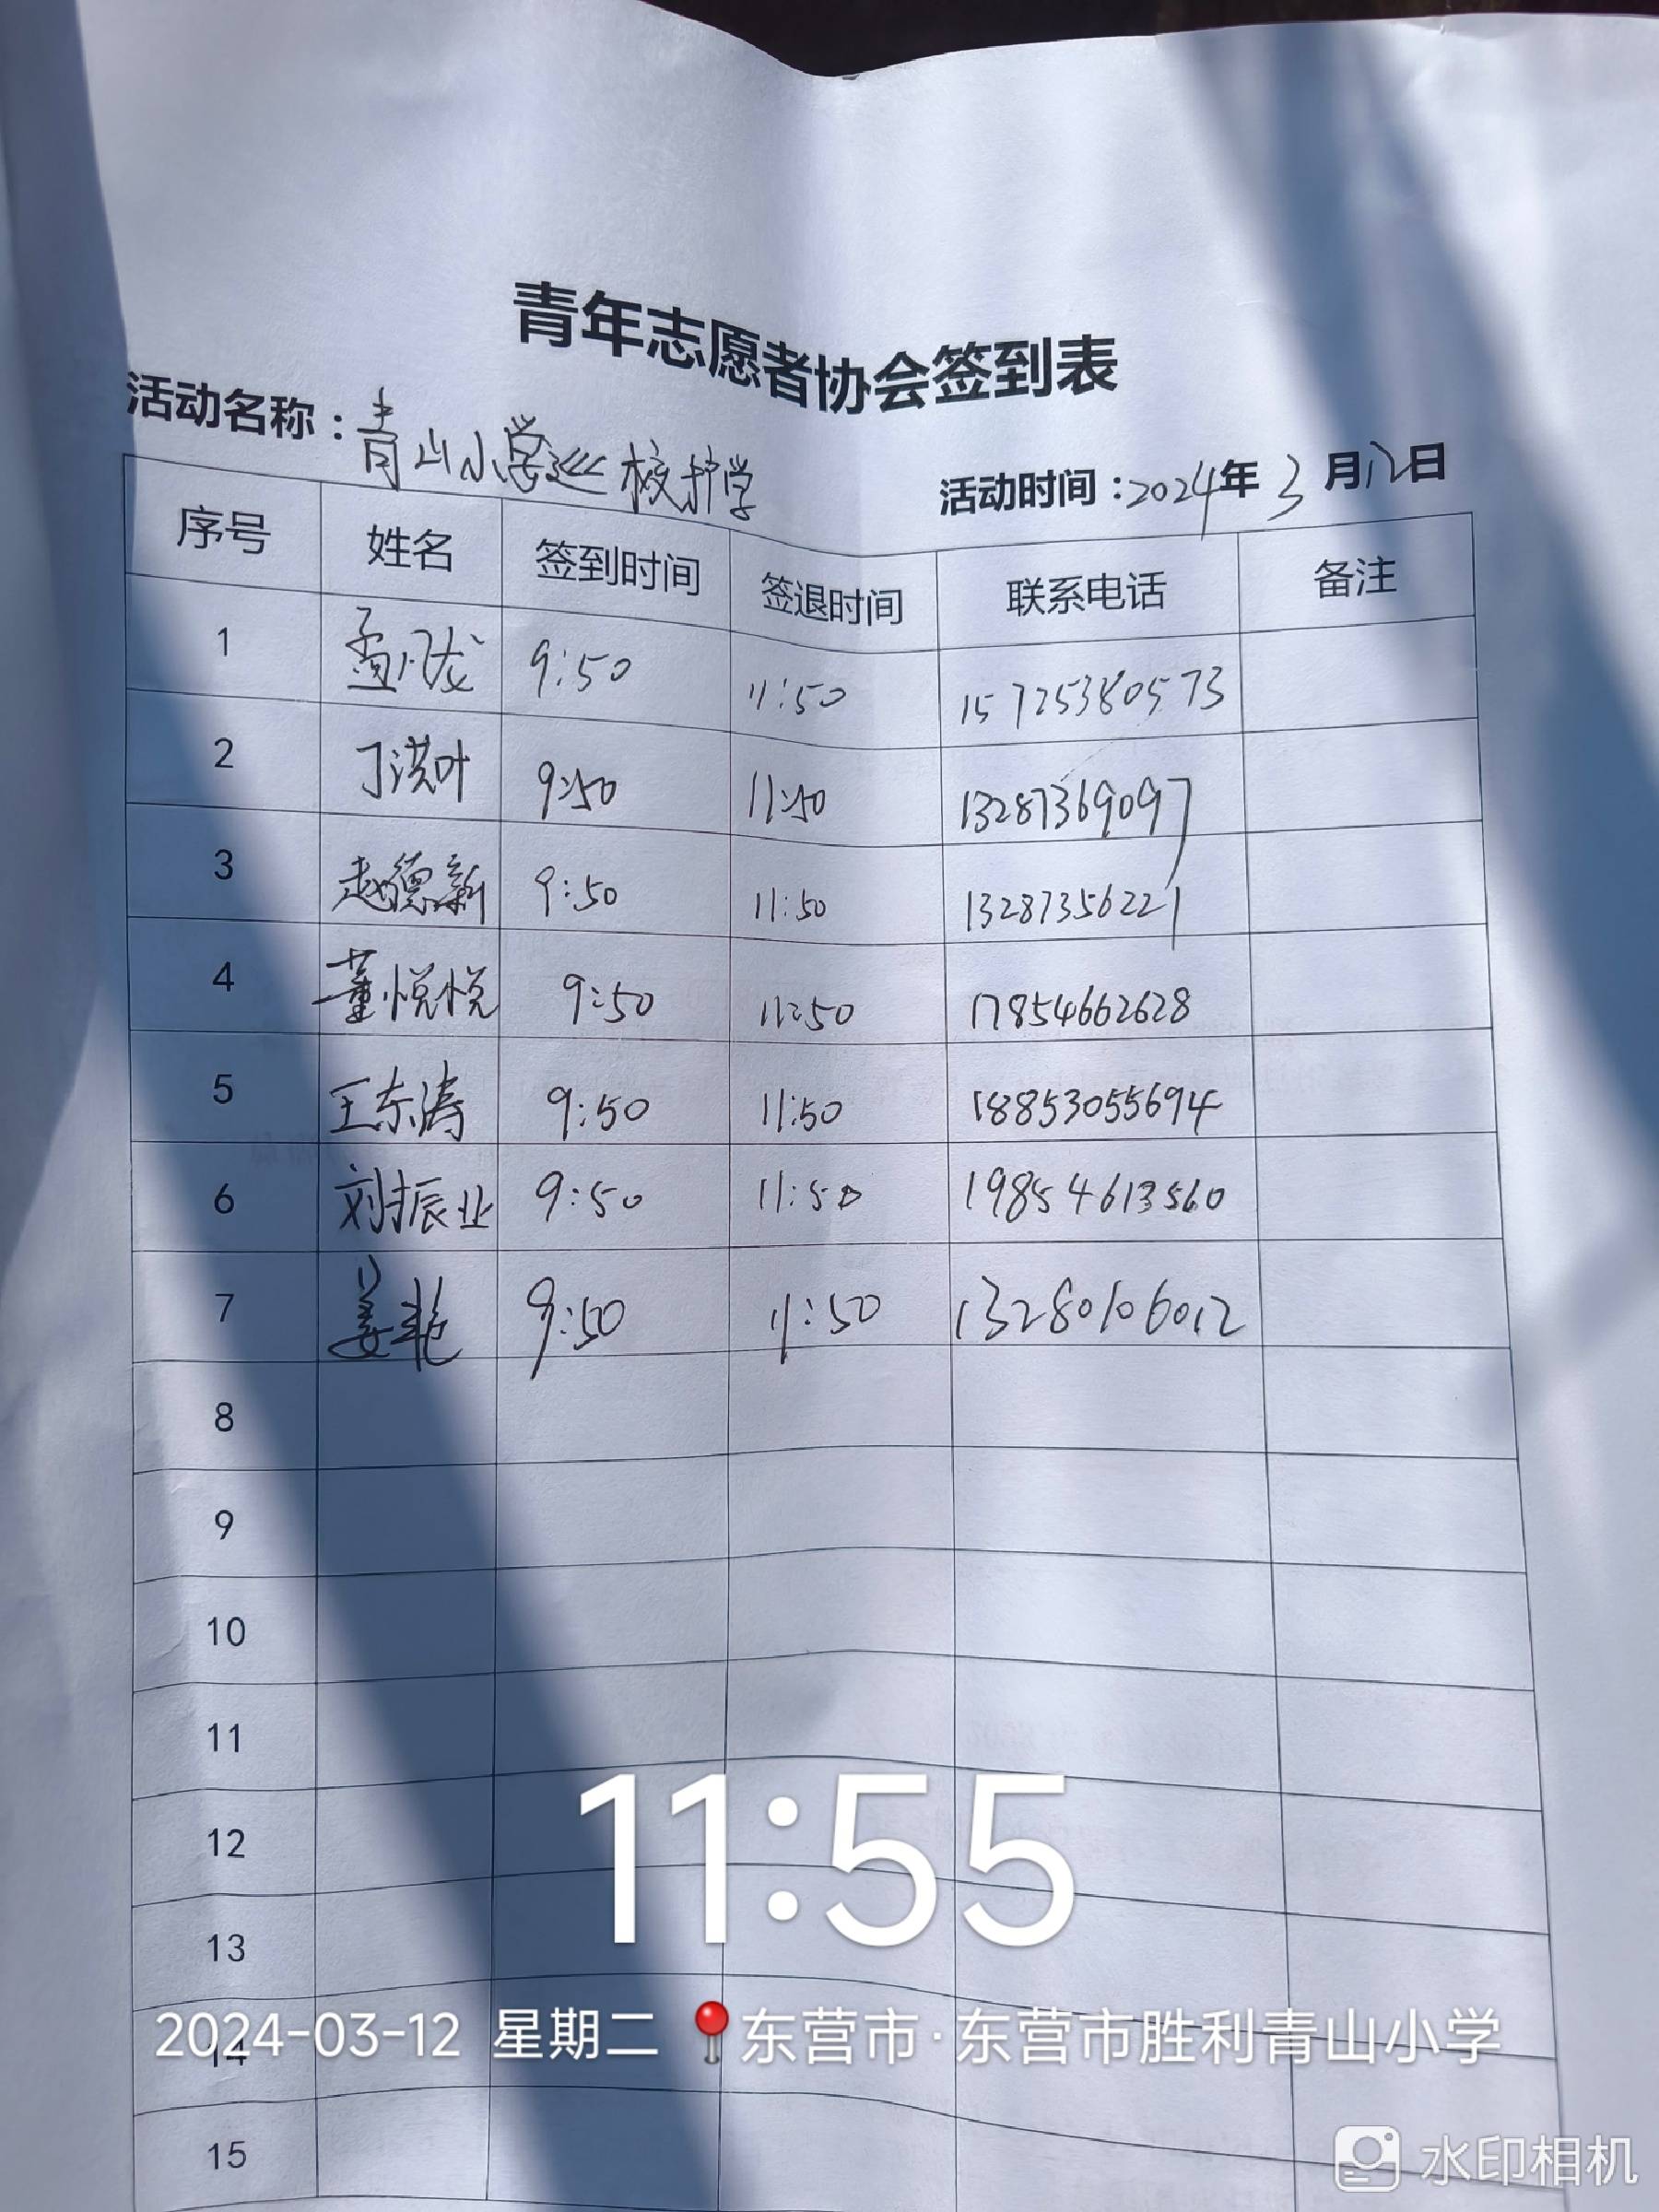 青年志愿者协会签到表
活动名称：青山小学巡校护学
活动时间：2024年3月12日
序号 姓名 签到时间 签退时间 联系电话 备注
1 孟凡龙 9:50 11:50 15725380573
2 丁洪叶 9:50 11:50 13287369097
3 赵德新 9:50 11:50 13287356221
4 董悦悦 9:50 11:50 17854662628
5 王东涛 9:50 11:50 18853055694
6 刘振业 9:50 11:50 19854613560
7 姜艳 9:50 11:50 13280106012
8
9
10
11
12
11:55
13
2024-03-12 星期二 东营市·东营市胜利青山小学
14
15
水印相机